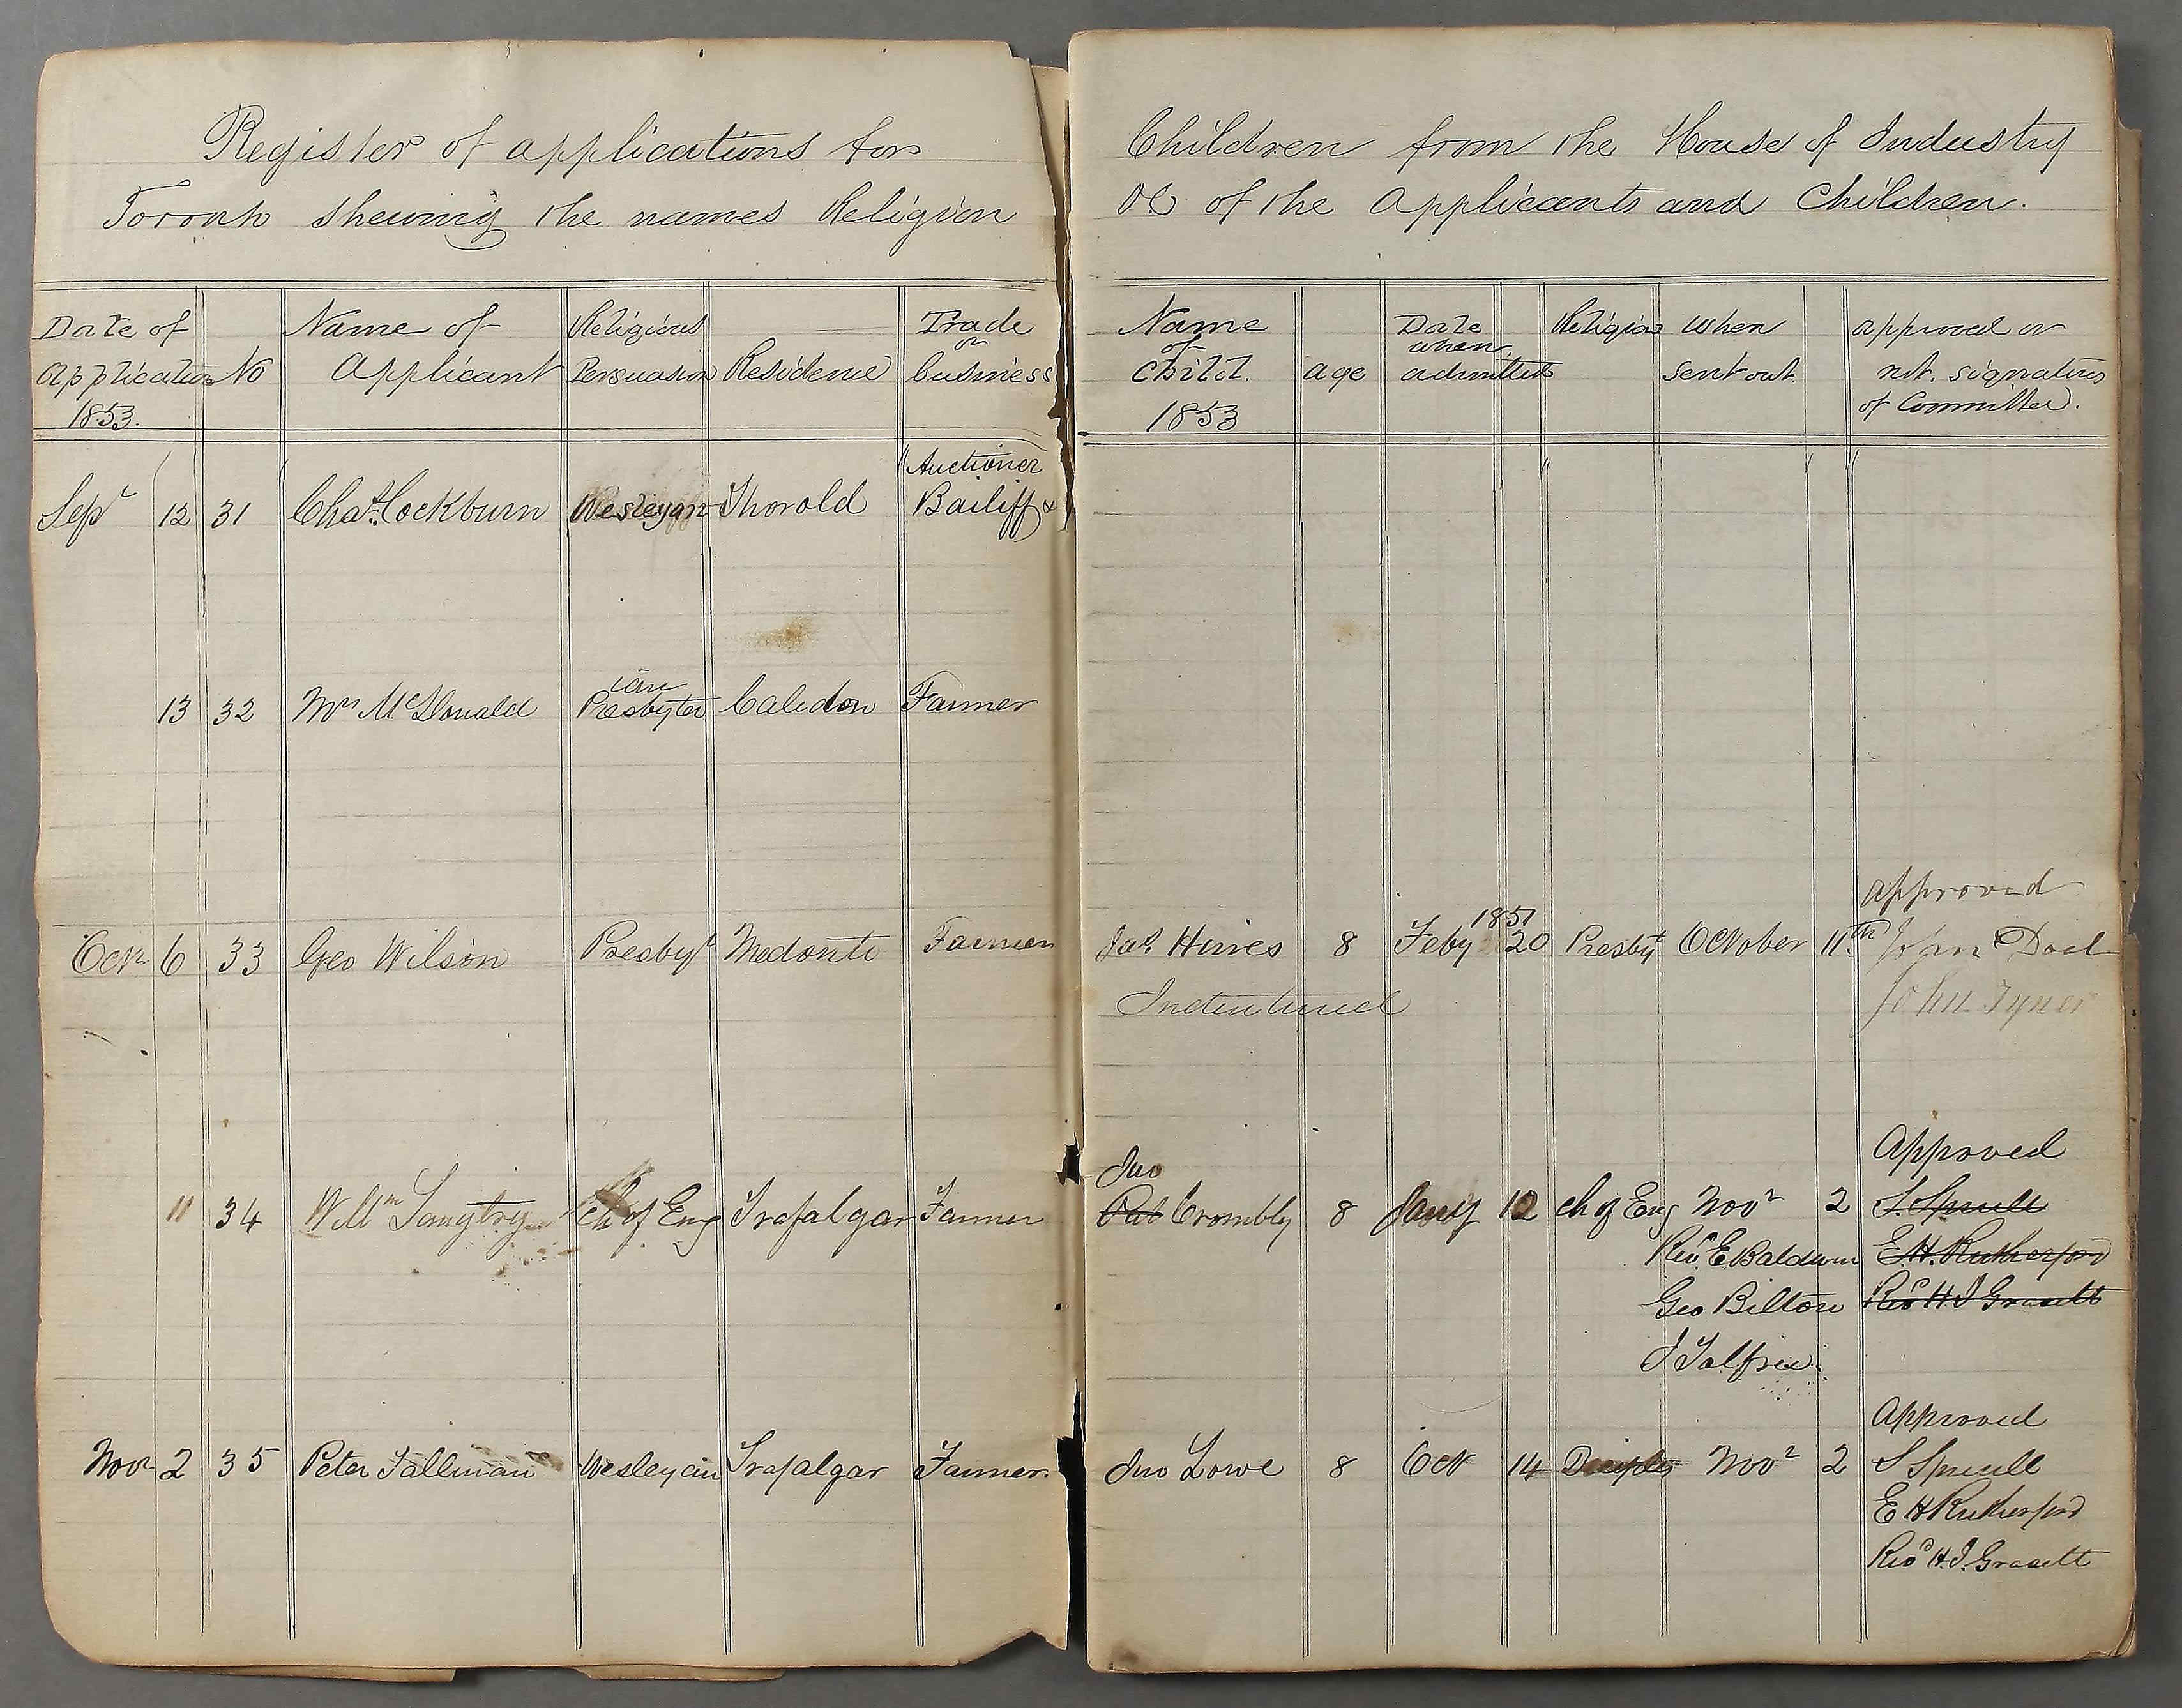 Register of applications for Children from the House of Industry
Toronto shewing the names Religion &c of the Applicants and Children.
Date of application 1853.
No
Name of Applicant
Religious Persuasion
Residence
Trade or business
Name of Child. 1853
age
Date when admitted
Religion
when sent out.
approved or not. signatures of Committee.
Sepr 12 31 Chas. Cockburn Wesleyan Thorold Auctioner Bailiff &
13 32 Mrs McDonald Presbyterian Caledon Farmer
approved
Octr 6 33 Geo Wilson Presbyt Medonte Farmer Jas. Hines 8 Feby 1851 20 Presbyt October 11th John Doel
Indentured John Tyner
Approved
11 34 Willm Langtry Ch of Eng Trafalgar Farmer Jno Pat Crombly 8 Jany 12 Ch of Eng Novr 2 S. Spreull
Revd. E. Baldwin E. H. Rutherford
Geo Bilton Revd H J Grasett
J
Approved
Novr 2 35 Peter Tallman Wesleyan Trafalgar Farmer. Jno Lowe 8 Oct 14 Disciples Novr 2 S Spreull
E H Rutherford
Revd H. J. Grasett